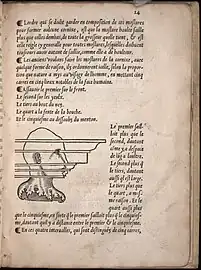 14
L'ordre qui se doibt garder en composition de ces moslures
pour former aulcune cornice, est que la moslure haulte saille
plus que celles dombas, de toute la grosseur qu'elle tient, & est
ceste reigle generalle pour toutes moslures, lesquelles doibuent
tousiours auoir autant de saillie, comme elle a de haulteur.
Les anciens voulans faire les moslures de la cornice, auec
quelque forme de raison, ordonnerent
proportion que nature a mys au visage de l'homme, en mettant cinq
carrez es cinq lieux notables de la face humaine.
Assauoir le premier sur le front.
Le second sur les yeulx.
Le tiers au bout du nez.
Le quart a la fente de la bouche.
Et le cinquiesme au dessoubz du menton.
Le premier sail-
loit plus que le
second, autant
de
l'ung a l'aultre.
Le second plus q̃
le tiers, autant
aussi q̃l est large.
Le tiers plus que
le quart, a mes-
me raison. Et le
quart aussi plus
que le cinquiesme, en sorte q̃ le premier sailloit plus q̃ le cinquies-
me, autant qu'il y a distance entre le premier & le cinquiesme.
En ces quatre interualles, qui sont distinguéz de cinq carrez,